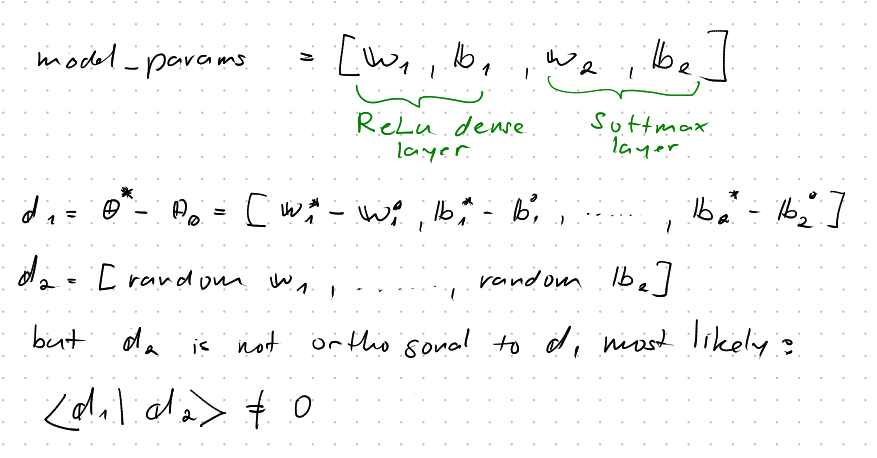 model_params = [w₁, b₁, w₂, b₂]
ReLu dense Softmax
layer layer
d₁ = θ* - θ₀ = [w₁* - w₁⁰, b₁* - b₁⁰, ....., b₂* - b₂⁰]
d₂ = [random w₁, ......, random b₂]
but d₂ is not orthogonal to d₁ most likely:
⟨d₁| d₂⟩ ≠ 0